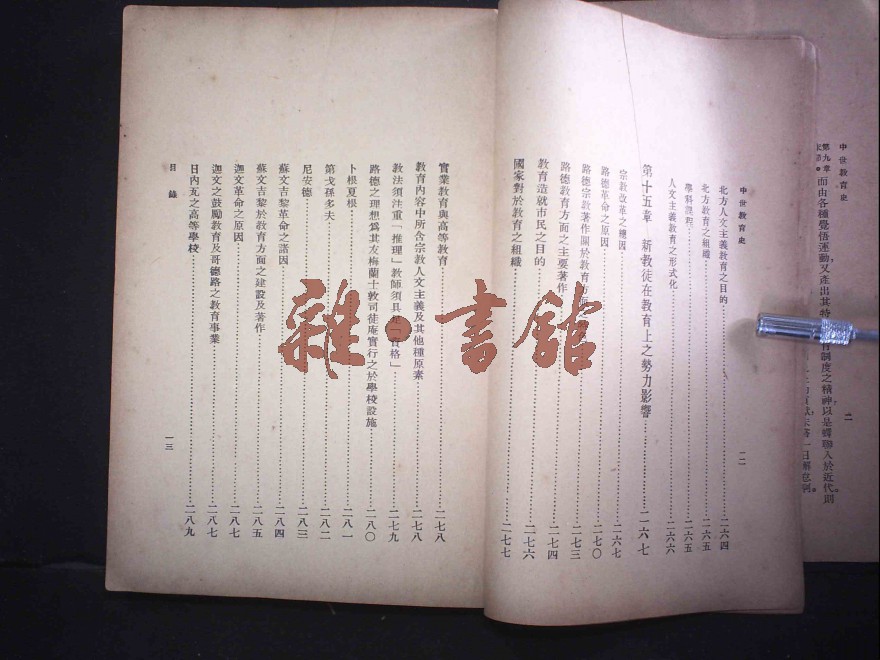 中世敎育史
第九章
而由各種覺悟運動，又產出其特
制度之精神以是蟬聯入於近代則
二
中世敎育史
一二
北方人文主義敎育之目的………二六四
北方敎育之組織………二六五
學科課程………二六五
人文主義敎育之形式化………二六六
第十五章　新敎徒在敎育上之勢力影響………二六七
宗敎改革之總因………二六七
路德革命之原因………二七〇
路德宗敎著作關於敎育方面………二七三
路德敎育方面之主要著作………二七四
敎育造就市民之目的………二七六
國家對於敎育之組織………二七七
實業敎育與高等敎育………二七八
敎育內容中所含宗敎人文主義及其他種原素………二七八
敎法須注重「推理」敎師須具「資格」………二七九
路德之理想爲其友梅蘭士敦司徒庵實行之於學校設施………二八〇
卜根夏根………二八一
第戈孫多夫………二八二
尼安德………二八三
蘇文吉黎革命之諸因………二八四
蘇文吉黎於敎育方面之建設及著作………二八五
迦文革命之原因………二八七
迦文之鼓勵敎育及哥德路之敎育事業………二八七
日內瓦之高等學校………二八九
目錄
一三
雜·書館